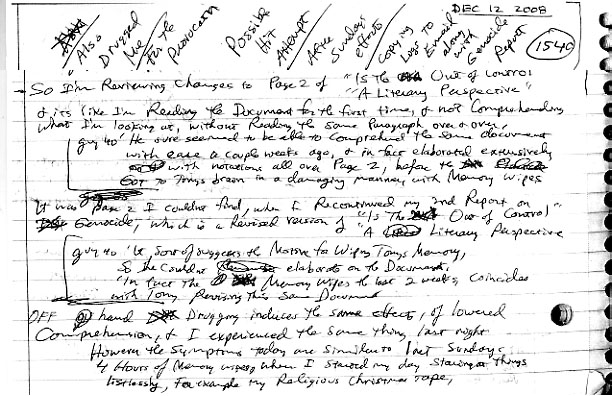 DEC 12 2008
Also Drugged Like for the Provocation Possible Hit Attempt After Sundays effects Copying Logs to Email along with Genocide Report
1540
So I'm Reviewing Changes to Page 2 of "Is the Out of Control
"A Literary Perspective"
& its like I'm Reading the Document for the first time, & not Comprehending
what I'm looking at, without Reading the Same Paragraph over & over,
guy 40 "He sure seemed to be able to Comprehend the Same document
with ease a couple weeks ago, & in fact elaborated extensively
with notations all over Page 2, before the
Got to Tonys brain in a damaging manner, with Memory Wipes
It was Page 2 I couldnt find, when I Recontinued my 2nd Report on
Genocide, which is a Revised version of "Is The Out of Control"
"A Literary Perspective
guy 40 "It Sort of suggests the Motive for Wiping Tonys Memory,
So he Couldnt elaborate on the Document,
"In fact the Memory Wipes the last 2 weeks, Coincides
with Tony Revising This Same Document
OFF hand Drugging induces the same effects, of lowered
Comprehension, & I experienced the Same thing last night
However the Symptoms today are Similar to last Sunday,
4 Hours of Memory wipes, when I started my day Staring at things
listlessly, For example my Religious Christmas Tape,